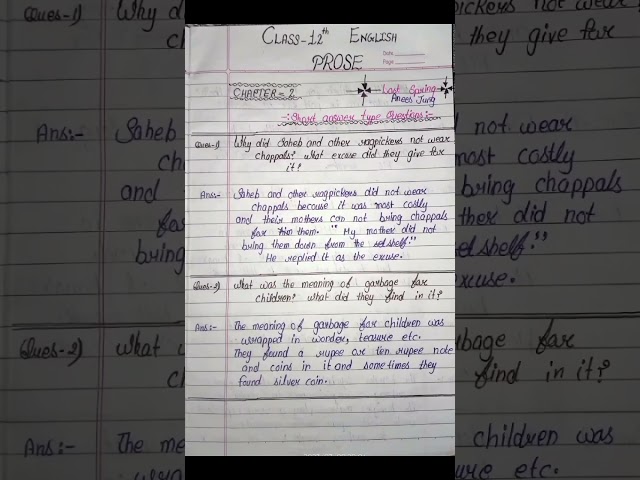 Class-12th English
PROSE
Date
Page
CHAPTER - 2
Lost Spring
Anees Jung
-: Short answer type Questions:-
Ques-1) Why did Saheb and other ragpickers not wear
chappals? What excuse did they give for
it?
Ans:- Saheb and other ragpickers did not wear
chappals because it was most costly
and their mothers can not bring chappals
for them. "My mother did not
bring them down from the selshelf."
He replied it as the excuse.
Ques-2) What was the meaning of garbage for
children? What did they find in it?
Ans:- The meaning of garbage for children was
wrapped in wonder, teasure etc.
They found a rupee or ten rupee note
and coins in it and sometimes they
found silver coin.